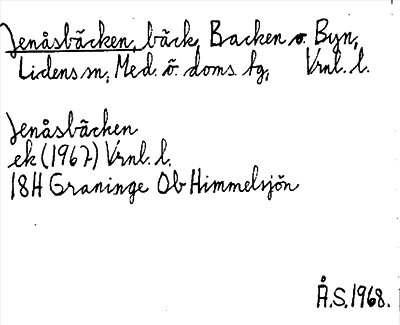 Jenåsbäcken, bäck, Backen o. Byn,
Lidens sn, Med. ö. doms tg, Vrnl. l.
Jenåsbäcken
ek (1967) Vrnl. l.
18H Graninge Ob Himmelsjön
Å.S. 1968.